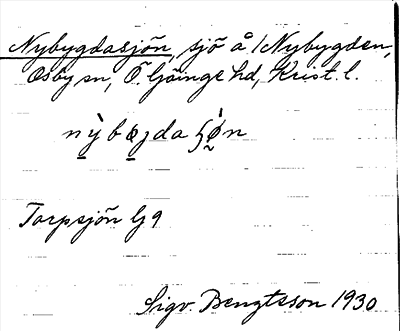 Nybygdasjön, sjö å /Nybygden,
Osby sn, Ö. Göinge hd, Krist. l.
Torpsjön G9
Sigv. Bengtsson 1930